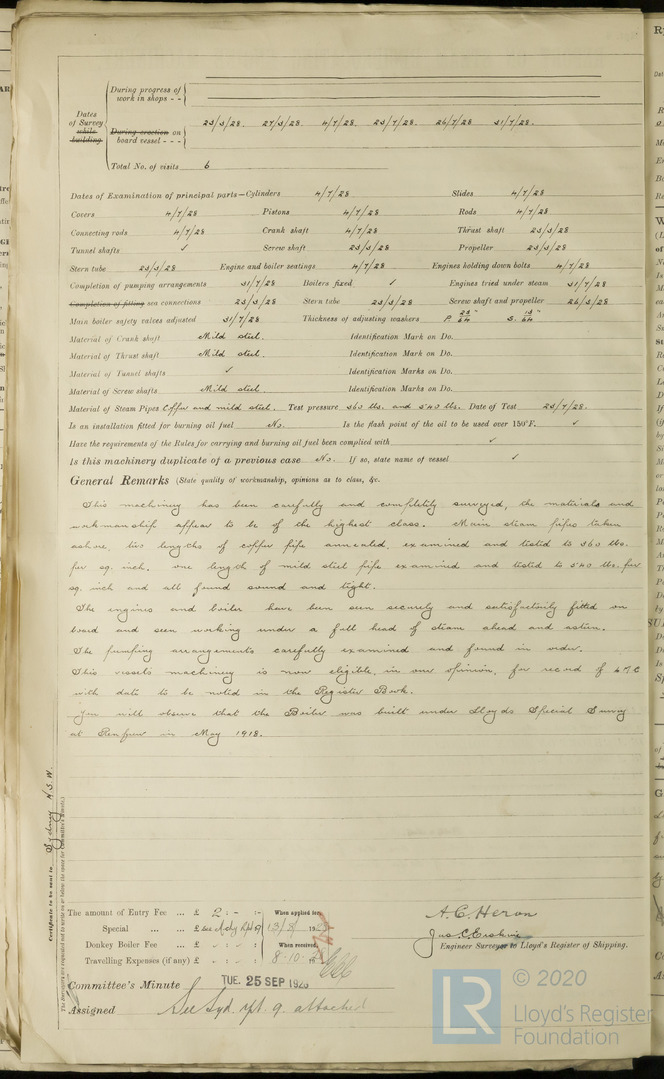 During progress of
work in shops - -
Dates
of Survey
while
building
During erection on
board vessel - - -
23/3/28. 27/3/28 4/7/28. 23/7/28 26/7/28 31/7/28.
Total No. of visits 6
Dates of Examination of principal parts—Cylinders 4/7/28 Slides 4/7/28
Covers 4/7/28 Pistons 4/7/28 Rods 4/7/28
Connecting rods 4/7/28 Crank shaft 4/7/28 Thrust shaft 23/3/28
Tunnel shafts ✓ Screw shaft 23/3/28 Propeller 23/3/28
Stern tube 23/3/28 Engine and boiler seatings 4/7/28 Engines holding down bolts 4/7/28
Completion of pumping arrangements 31/7/28 Boilers fixed ✓ Engines tried under steam 31/7/28
Completion of fitting sea connections 23/3/28 Stern tube 23/3/28 Screw shaft and propeller 26/3/28
Main boiler safety valves adjusted 31/7/28 Thickness of adjusting washers P. S.
Material of Crank shaft Mild steel. Identification Mark on Do.
Material of Thrust shaft Mild steel. Identification Mark on Do.
Material of Tunnel shafts ✓ Identification Marks on Do.
Material of Screw shafts Mild steel. Identification Marks on Do.
Material of Steam Pipes Copper and mild steel. Test pressure 360 lbs. and 540 lbs. Date of Test 23/7/28.
Is an installation fitted for burning oil fuel No. Is the flash point of the oil to be used over 150°F. ✓
Have the requirements of the Rules for carrying and burning oil fuel been complied with ✓
Is this machinery duplicate of a previous case No. If so, state name of vessel ✓
General Remarks (State quality of workmanship, opinions as to class, &c.
This machinery has been carefully and completely surveyed, the materials and
workmanship appear to be of the highest class. Main steam pipes taken
ashore, two lengths of copper pipe annealed, examined and tested to 360 lbs.
per sq. inch. one length of mild steel pipe examined and tested to 540 lbs. per
sq. inch and all found sound and tight.
The engines and boiler have been seen securely and satisfactorily fitted on
board and seen working under a full head of steam ahead and astern.
The pumping arrangements carefully examined and found in order.
This vessels machinery is now eligible, in our opinion, for record of L.M.C
with date to be noted in the Register Book.
You will observe that the Boiler was built under Lloyds Special Survey
at Renfrew in May 1918.
Certificate to be sent to Sydney N.S.W.
The Surveyors are requested not to write on or below the space for Committee's Minute.
The amount of Entry Fee ... £ 2 : - : - When applied for,
Special ... ... £ see Sydy Rpt 9 13/8/ 19
Donkey Boiler Fee ... £ When received,
Travelling Expenses (if any) £ 8.10. 19
A. C. Heron
Jas C Erskine
Engineer Surveyor to Lloyd's Register of Shipping.
Committee's Minute TUE. 25 SEP 1928
Assigned See Syd. rpt. 9. attached
LR
© 2020
Lloyd's Register
Foundation